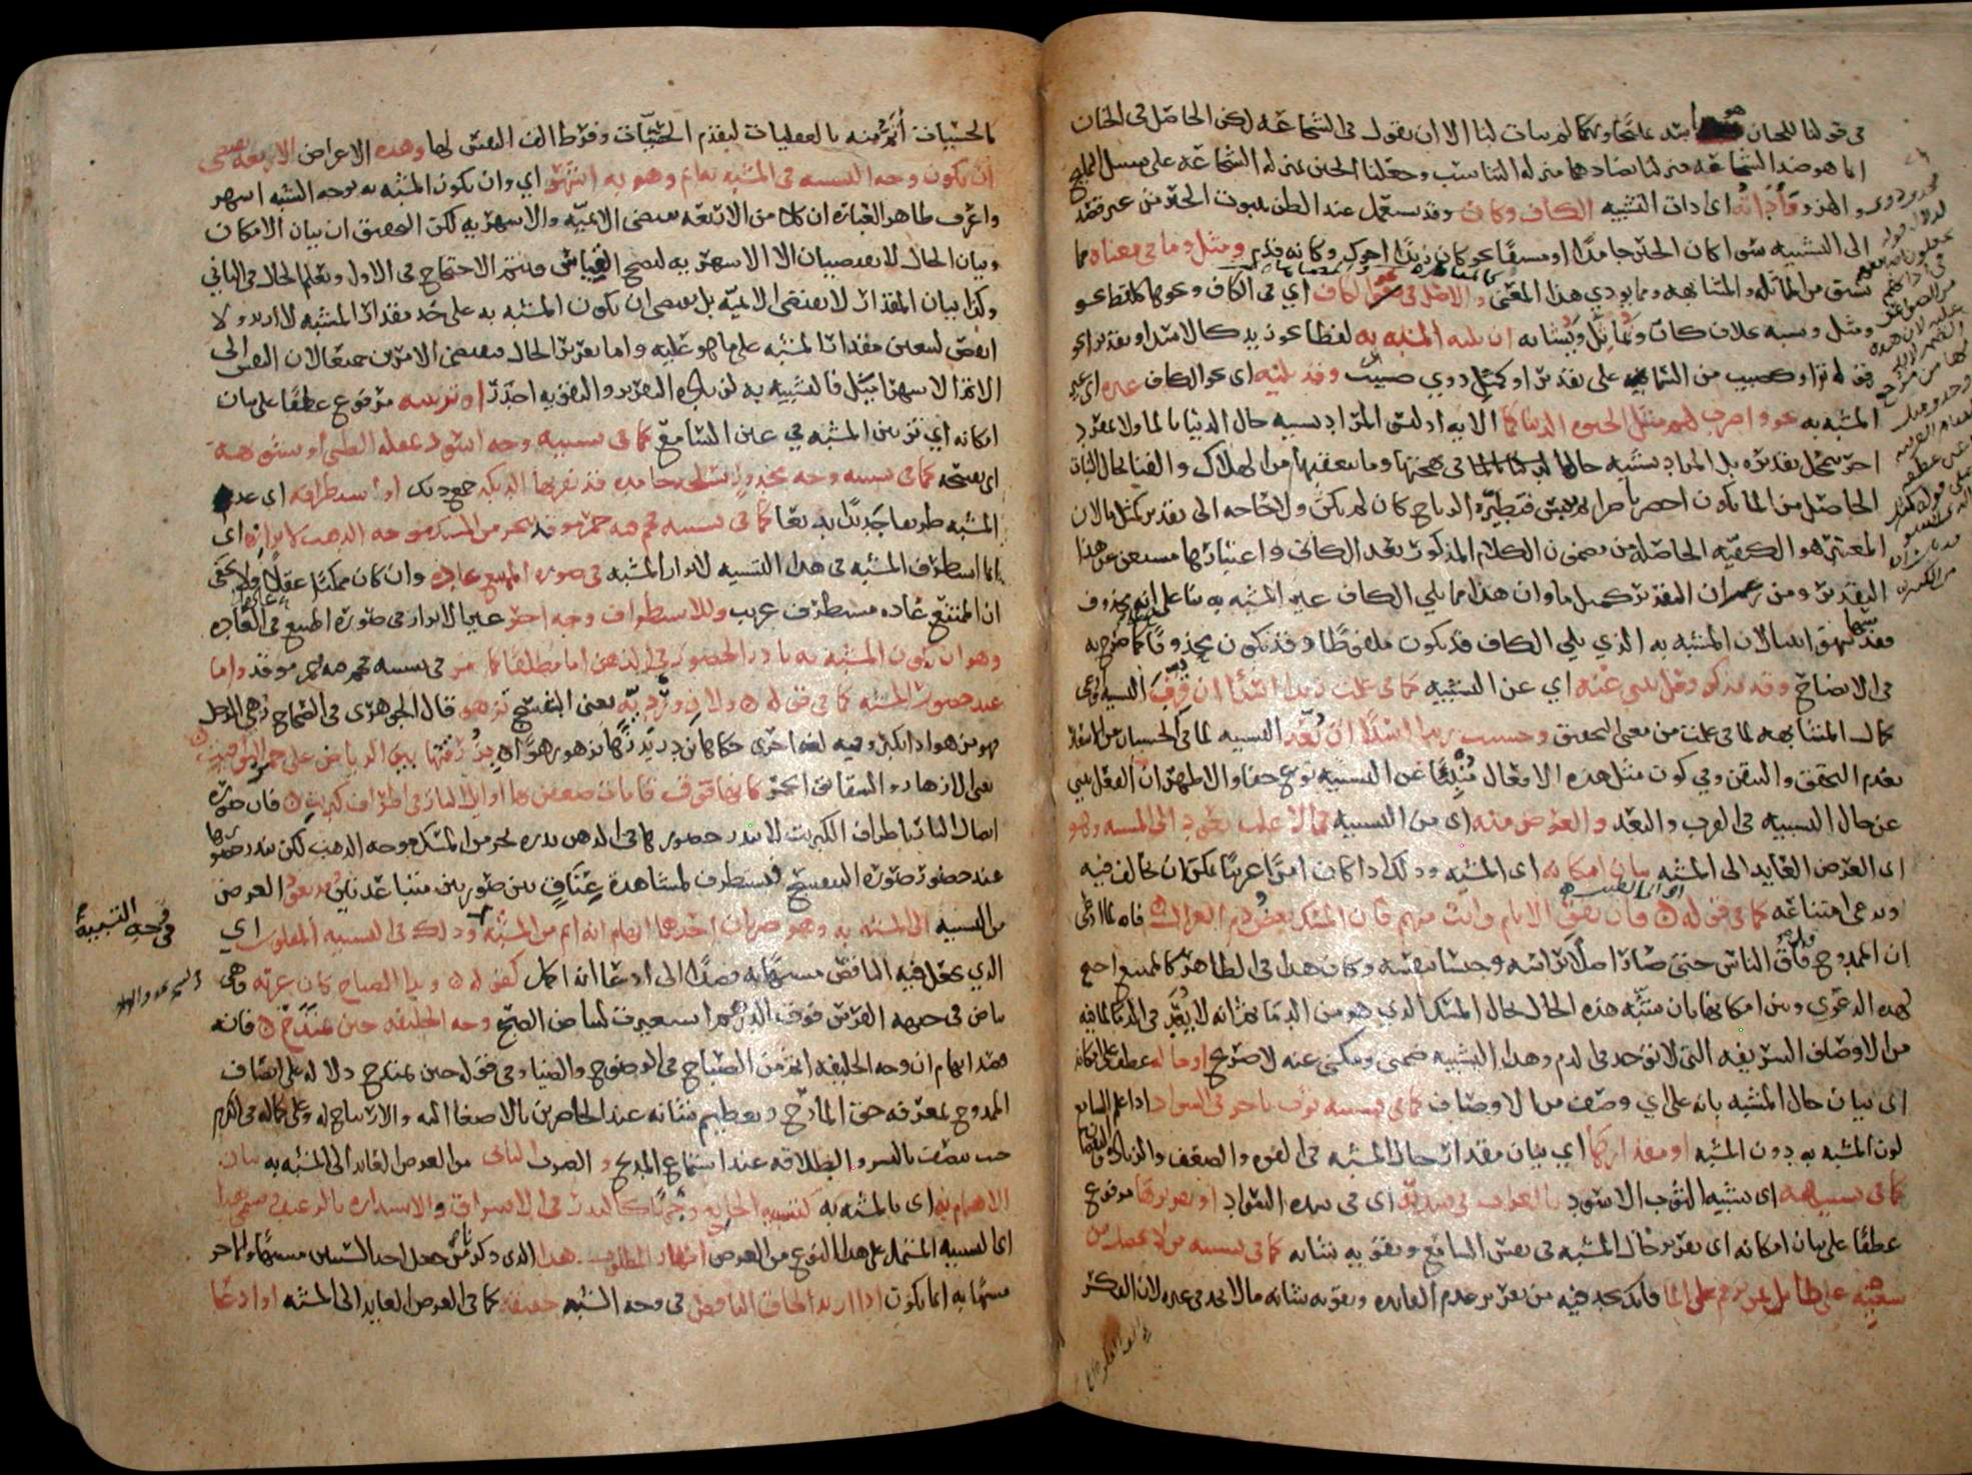 في قولنا للجبان هو اسد تمليحا وتهكما لم يتأت لنا الا ان نقول في الشجاعة لكن الحاصل في الجبان
انما هو ضد الشجاعة فنزلنا تضادهما منزلة التناسب وجعلنا الجبن بمنزلة الشجاعة على سبيل التمليح
والهزو وأداته اي ادات التشبيه الكاف وكان وقد تستعمل عند الظن بثبوت الخبر من غير قصد
الى التشبيه سوا كان الخبر جامدا او مشتقا نحو كان زيدا اخوك وكانه قدم ومثل وما في معناه مما
يشتق من المماثلة والمشابهة وما يودي هذا المعنى والاصل في نحو الكاف اي في الكاف ونحوها كلفظ نحو
ومثل وشبه بخلاف كان ويماثل ويشابه ان يليه المشبه به لفظا نحو زيد كالاسد او تقديرا نحو
قوله تعالى او كصيب من السماء على تقدير او كمثل ذوي صيب وقد يليه اي نحو الكاف غيره اي غير
المشبه به نحو واضرب لهم مثل الحيوة الدنيا كما الايه اذ ليس المراد تشبيه حال الدنيا بالما ولا بمفرد
اخر يتمحل تقديره بل المراد تشبيه حالها في بهجتها وما يتعقبها من الهلاك والفنا بحال النبات
الحاصل من الما يكون اخضر ناضرا ثم ييبس فتطيره الرياح كان لم يكن ولا حاجة الى تقدير كمثل ما لان
المعتبر هو الكيفيه الحاصلة من مضمون الكلام المذكور بعد الكاف واعتبارها مستغن عن هذا
التقدير ومن زعم ان التقدير كمثل ما وان هذا مما يلي الكاف غير المشبه به بنا على انه محذوف
فقد سها سهوا بينا لان المشبه به الذي يلي الكاف قد يكون ملفوظا وقد يكون محذوفا كما صرح به
في الايضاح وقد يذكر فعل ينبي عنه اي عن التشبيه كما في علمت زيدا اسدا ان قرب التشبيه وادعي
كمال المشابهة لما في علمت من معنى التحقيق وحسبت زيدا اسدا ان بُعّد التشبيه لما في الحسبان من الاشعار
بعدم التحقق والتيقن وفي كون مثل هذه الافعال منبيا عن التشبيه نوع خفا والاظهر ان الفعل ينبي
عن حال التشبيه في القرب والبعد والغرض منه اي من التشبيه في الاغلب يعود الى المشبه وهو
اي الغرض العايد الى المشبه بيان امكانه اي المشبه وذلك اذا كان امرا غريبا يمكن ان يخالف فيه
ويدعى امتناعه كما في قوله فان تفق الانام وانت منهم فان المسك بعض دم الغزال فانه لما ادعى
ان الممدوح فاق الناس حتى صار اصلا براسه وجنسا بنفسه وكان هذا في الظاهر كالممتنع احتج
لهذه الدعوى وبين امكانها بان شبه هذه الحال بحال المسك الذي هو من الدما ثم انه لا يعد في الدما لما فيه
من الاوصاف الشريفه التي لا توجد في الدم وهذا التشبيه ضمني ومكني عنه لا صريح او حاله عطف على امكانه
اي بيان حال المشبه بانه على اي وصف من الاوصاف كما في تشبيه ثوب باخر في السواد اذا علم السامع
لون المشبه به دون المشبه او مقدارها اي بيان مقدار حال المشبه في القوه والضعف والزيادة والنقصان
كما في تشبيهه اي تشبيه الثوب الاسود بالغراب في شدته اي في شده السواد او تقريرها مرفوع
عطفا على بيان امكانه اي تقرير حال المشبه في نفس السامع وتقوية شانه كما في تشبيه من لا يحصل من
سعيه على طايل بمن يرقم على الما فانك تجد فيه من تقرير عدم الفايده وتقويه شانه مالا تجد في غيره لان الفكر
بالحسيات أتم منه بالعقليات لتقدم الحسيات وفرط الف النفس لها وهذه الاغراض الاربعة تقتضي
ان يكون وجه التشبيه في المشبه به اتم وهو به اشهر اي وان يكون المشبه به بوجه الشبه اشهر
واعرف ظاهر العبارة ان كلا من الاربعة يقتضي الاتميه والاشهريه لكن التحقيق ان بيان الامكان
وبيان الحال لا يقتضيان الا الاشهريه ليصح القياس ويتم الاحتجاج في الاول ويعلم الحال في الثاني
وكذا بيان المقدار لا يقتضي الاتميه بل يقتضي ان يكون المشبه به على حد مقدار المشبه لا ازيد ولا
انقص ليتعين مقدار المشبه على ما هو عليه واما تقرير الحال فيقتضي الامرين جميعا لان النفس الى
الاتم الاشهر اميل فالتشبيه به لزيادة التقرير والتقويه اجدر او تزيينه مرفوع عطفا على بيان
امكانه اي تزيين المشبه في عين السامع كما في تشبيه وجه اسود بمقلة الظبي او تشويهه
اي تقبيحه كما في تشبيه وجه مجدور بسلحة جامده قد نقرتها الديكه جمع ديك او استطرافه اي عد
المشبه طريفا جديدا بديعا كما في تشبيه فحم فيه جمر موقد ببحر من المسك موجه الذهب لابرازه اي
انما استطرف المشبه في هذا التشبيه لابراز المشبه في صورة الممتنع عادة وان كان ممكنا عقلا ولا يخفى
ان الممتنع عاده مستطرف غريب وللاستطراف وجه اخر غير الابراز في صورة الممتنع في العاده
وهو ان يكون المشبه به نادر الحضور في الذهن اما مطلقا كما مر في تشبيه فحم فيه جمر موقد واما
عند حضور المشبه كما في قوله ولازورديّة يعني البنفسج تزهو قال الجوهري في الصحاح زهي الرجل
فهو مزهو اذا تكبر وفيه لغة اخرى حكاها ابن دريد زها يزهو زهوا بزرقتها بين الرياض على حمر اليواقيت
يعني الازهار والشقايق الحمر كانها فوق قامات ضعفن بها اوايل النار في اطراف كبريت فان صورة
اتصال النار باطراف الكبريت لا يندر حضورها في الذهن ندرة بحر من المسك موجه الذهب لكن يندر حضورها
عند حضور صورة البنفسج فيستطرف لمشاهدة عناق بين صورتين متباعدتين وقد يعود الغرض
من التشبيه الى المشبه به وهو ضربان احدهما ايهام انه اتم من المشبه وذلك في التشبيه المقلوب اي
الذي يجعل فيه الناقص مشبها به قصدا الى ادعا انه اكمل كقوله وبدا الصباح كان غرته هي
بياض في جبهة الفرس فوق الدرهم استعيرت لبياض الصبح وجه الخليفة حين يمتدح فانه
قصد ايهام ان وجه الخليفه اتم من الصباح في الوضوح والضيا وفي قوله حين يمتدح دلاله على اتصاف
الممدوح بمعرفه حق المادح وتعظيم شانه عند الحاضرين بالاصغا اليه والارتياح له وعلى كماله في الكرم
حيث يتصف بالبشر والطلاقه عند استماع المديح والضرب الثاني من الغرض العايد الى المشبه به بيان
الاهتمام به اي بالمشبه به كتشبيه الجايع وجها كالبدر في الاشراق والاستداره بالرغيف ويسمى هذا
اي التشبيه المشتمل على هذا النوع من الغرض اظهار المطلوب هذا الذي ذكرناه من جعل احد الشيين مشبها والاخر
مشبها به انما يكون اذا اريد الحاق الناقص في وجه الشبه حقيقة كما في الغرض العايد الى المشبه او ادعا
في وجه التشبيه